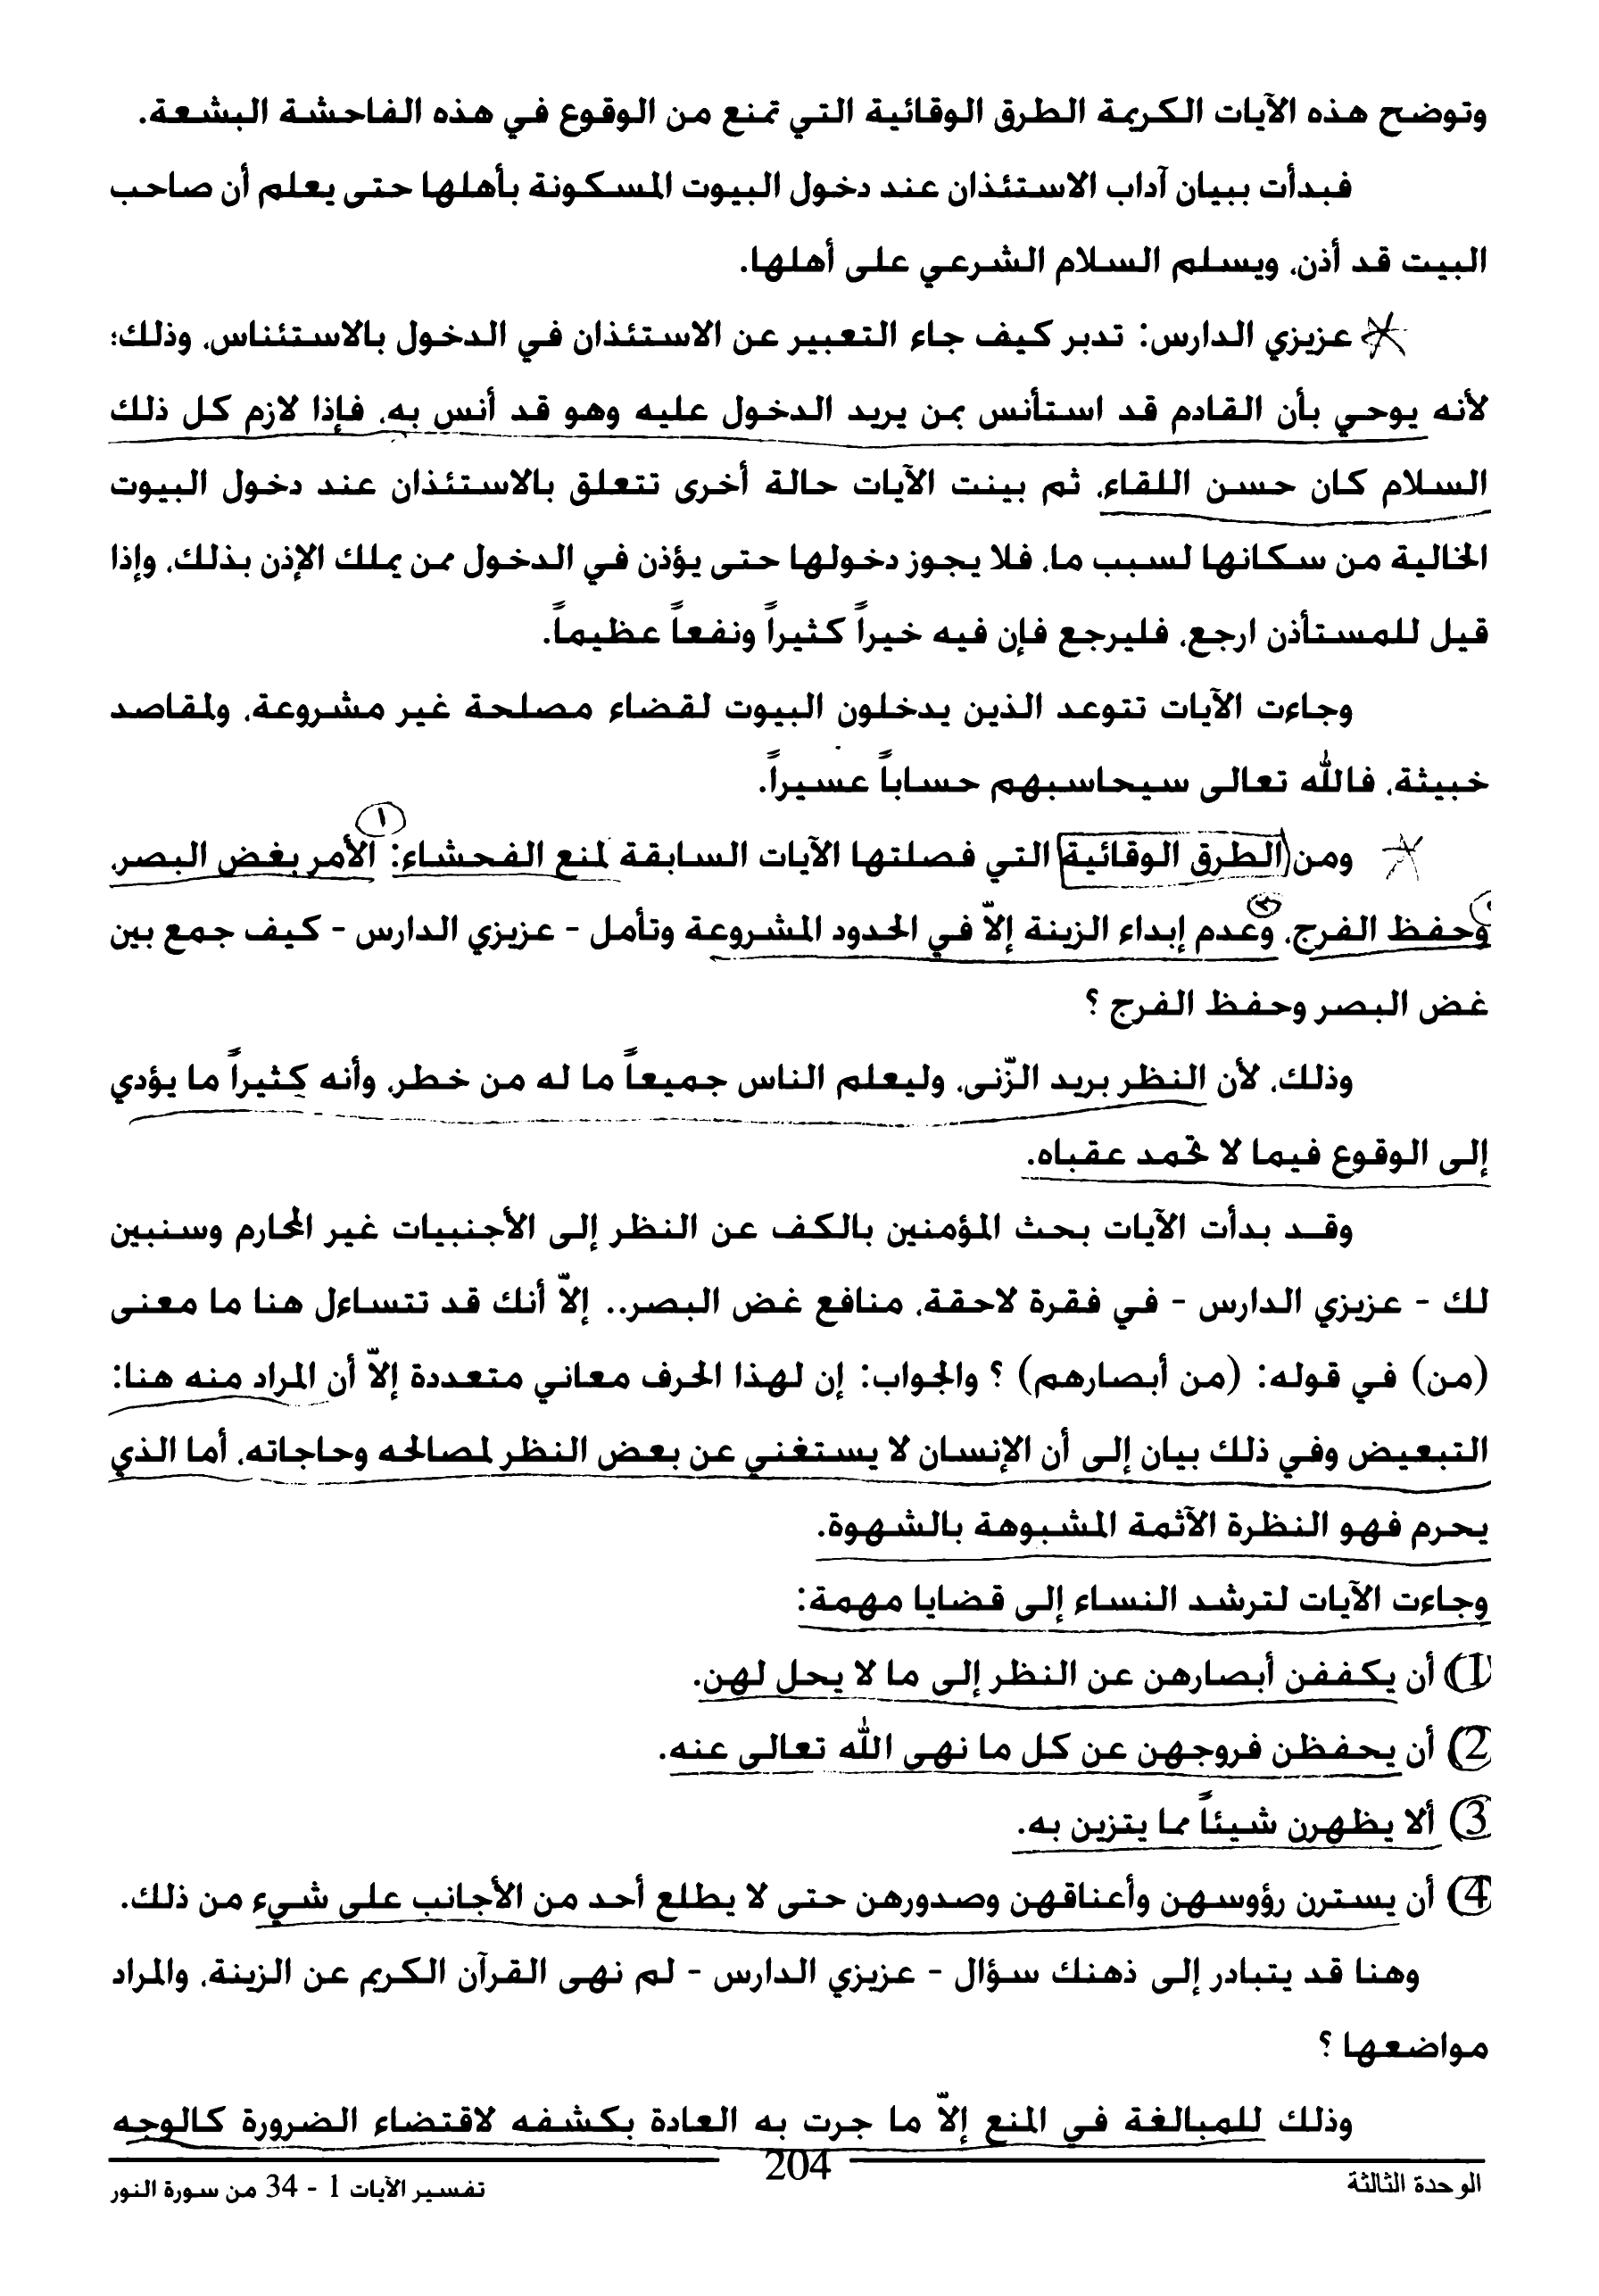 وتوضح هذه الآيات الكريمة الطرق الوقائية التي تمنع من الوقوع في هذه الفاحشة البشعة.
فبدأت ببيان آداب الاستئذان عند دخول البيوت المسكونة بأهلها حتى يعلم أن صاحب
البيت قد أذن، ويسلم السلام الشرعي على أهلها.
عزيزي الدارس: تدبر كيف جاء التعبير عن الاستئذان في الدخول بالاستئناس، وذلك؛
لأنه يوحي بأن القادم قد استأنس بمن يريد الدخول عليه وهو قد أنس به، فإذا لازم كل ذلك
السلام كان حسن اللقاء، ثم بينت الآيات حالة أخرى تتعلق بالاستئذان عند دخول البيوت
الخالية من سكانها لسبب ما، فلا يجوز دخولها حتى يؤذن في الدخول ممن يملك الإذن بذلك، وإذا
قيل للمستأذن ارجع، فليرجع فإن فيه خيراً كثيراً ونفعاً عظيماً.
وجاءت الآيات تتوعد الذين يدخلون البيوت لقضاء مصلحة غير مشروعة، ولمقاصد
خبيثة، فالله تعالى سيحاسبهم حساباً عسيراً.
١
ومن الطرق الوقائية التي فصلتها الآيات السابقة لمنع الفحشاء: الأمر بغض البصر،
وحفظ الفرج، وعدم إبداء الزينة إلاّ في الحدود المشروعة وتأمل - عزيزي الدارس - كيف جمع بين
غض البصر وحفظ الفرج ؟
وذلك، لأن النظر بريد الزّنى، وليعلم الناس جميعاً ما له من خطر، وأنه كثيراً ما يؤدي
إلى الوقوع فيما لا تحمد عقباه.
وقد بدأت الآيات بحث المؤمنين بالكف عن النظر إلى الأجنبيات غير المحارم وسنبين
لك - عزيزي الدارس - في فقرة لاحقة، منافع غض البصر.. إلاّ أنك قد تتساءل هنا ما معنى
(من) في قوله: (من أبصارهم) ؟ والجواب: إن لهذا الحرف معاني متعددة إلاّ أن المراد منه هنا:
التبعيض وفي ذلك بيان إلى أن الإنسان لا يستغني عن بعض النظر لمصالحه وحاجاته، أما الذي
يحرم فهو النظرة الآثمة المشبوهة بالشهوة.
وجاءت الآيات لترشد النساء إلى قضايا مهمة:
1) أن يكففن أبصارهن عن النظر إلى ما لا يحل لهن.
2) أن يحفظن فروجهن عن كل ما نهى الله تعالى عنه.
3) ألا يظهرن شيئاً مما يتزين به.
4) أن يسترن رؤوسهن وأعناقهن وصدورهن حتى لا يطلع أحد من الأجانب على شيء من ذلك.
وهنا قد يتبادر إلى ذهنك سؤال - عزيزي الدارس - لم نهى القرآن الكريم عن الزينة، والمراد
مواضعها ؟
وذلك للمبالغة في المنع إلاّ ما جرت به العادة بكشفه لاقتضاء الضرورة كالوجه
الوحدة الثالثة 204 تفسير الآيات 1 - 34 من سورة النور